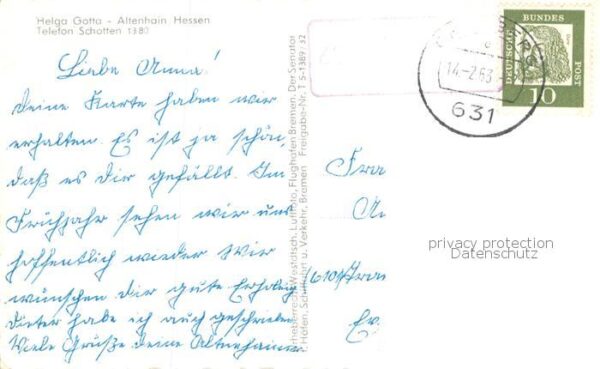 Helga Gotta - Altenhain, Hessen
Telefon Schotten 1380
Liebe Anna!
Deine Karte haben wir
erhalten. Es ist ja schön,
daß es dir gefällt. Im
Frühjahr sehen wir uns
hoffentlich wieder Wir
wünschen dir gute Erholung
Dieter habe ich auch geschrieben
Viele Grüße deine Altenhainer
14.-2.63
631
DEUTSCHE BUNDES POST
10
Luftfoto, Flughafen Bremen. Der Senator
f. Häfen, Schiffahrt u. Verkehr, Bremen Freigabe-Nr. T 5-1389/32
Fra
privacy protection
Datenschutz